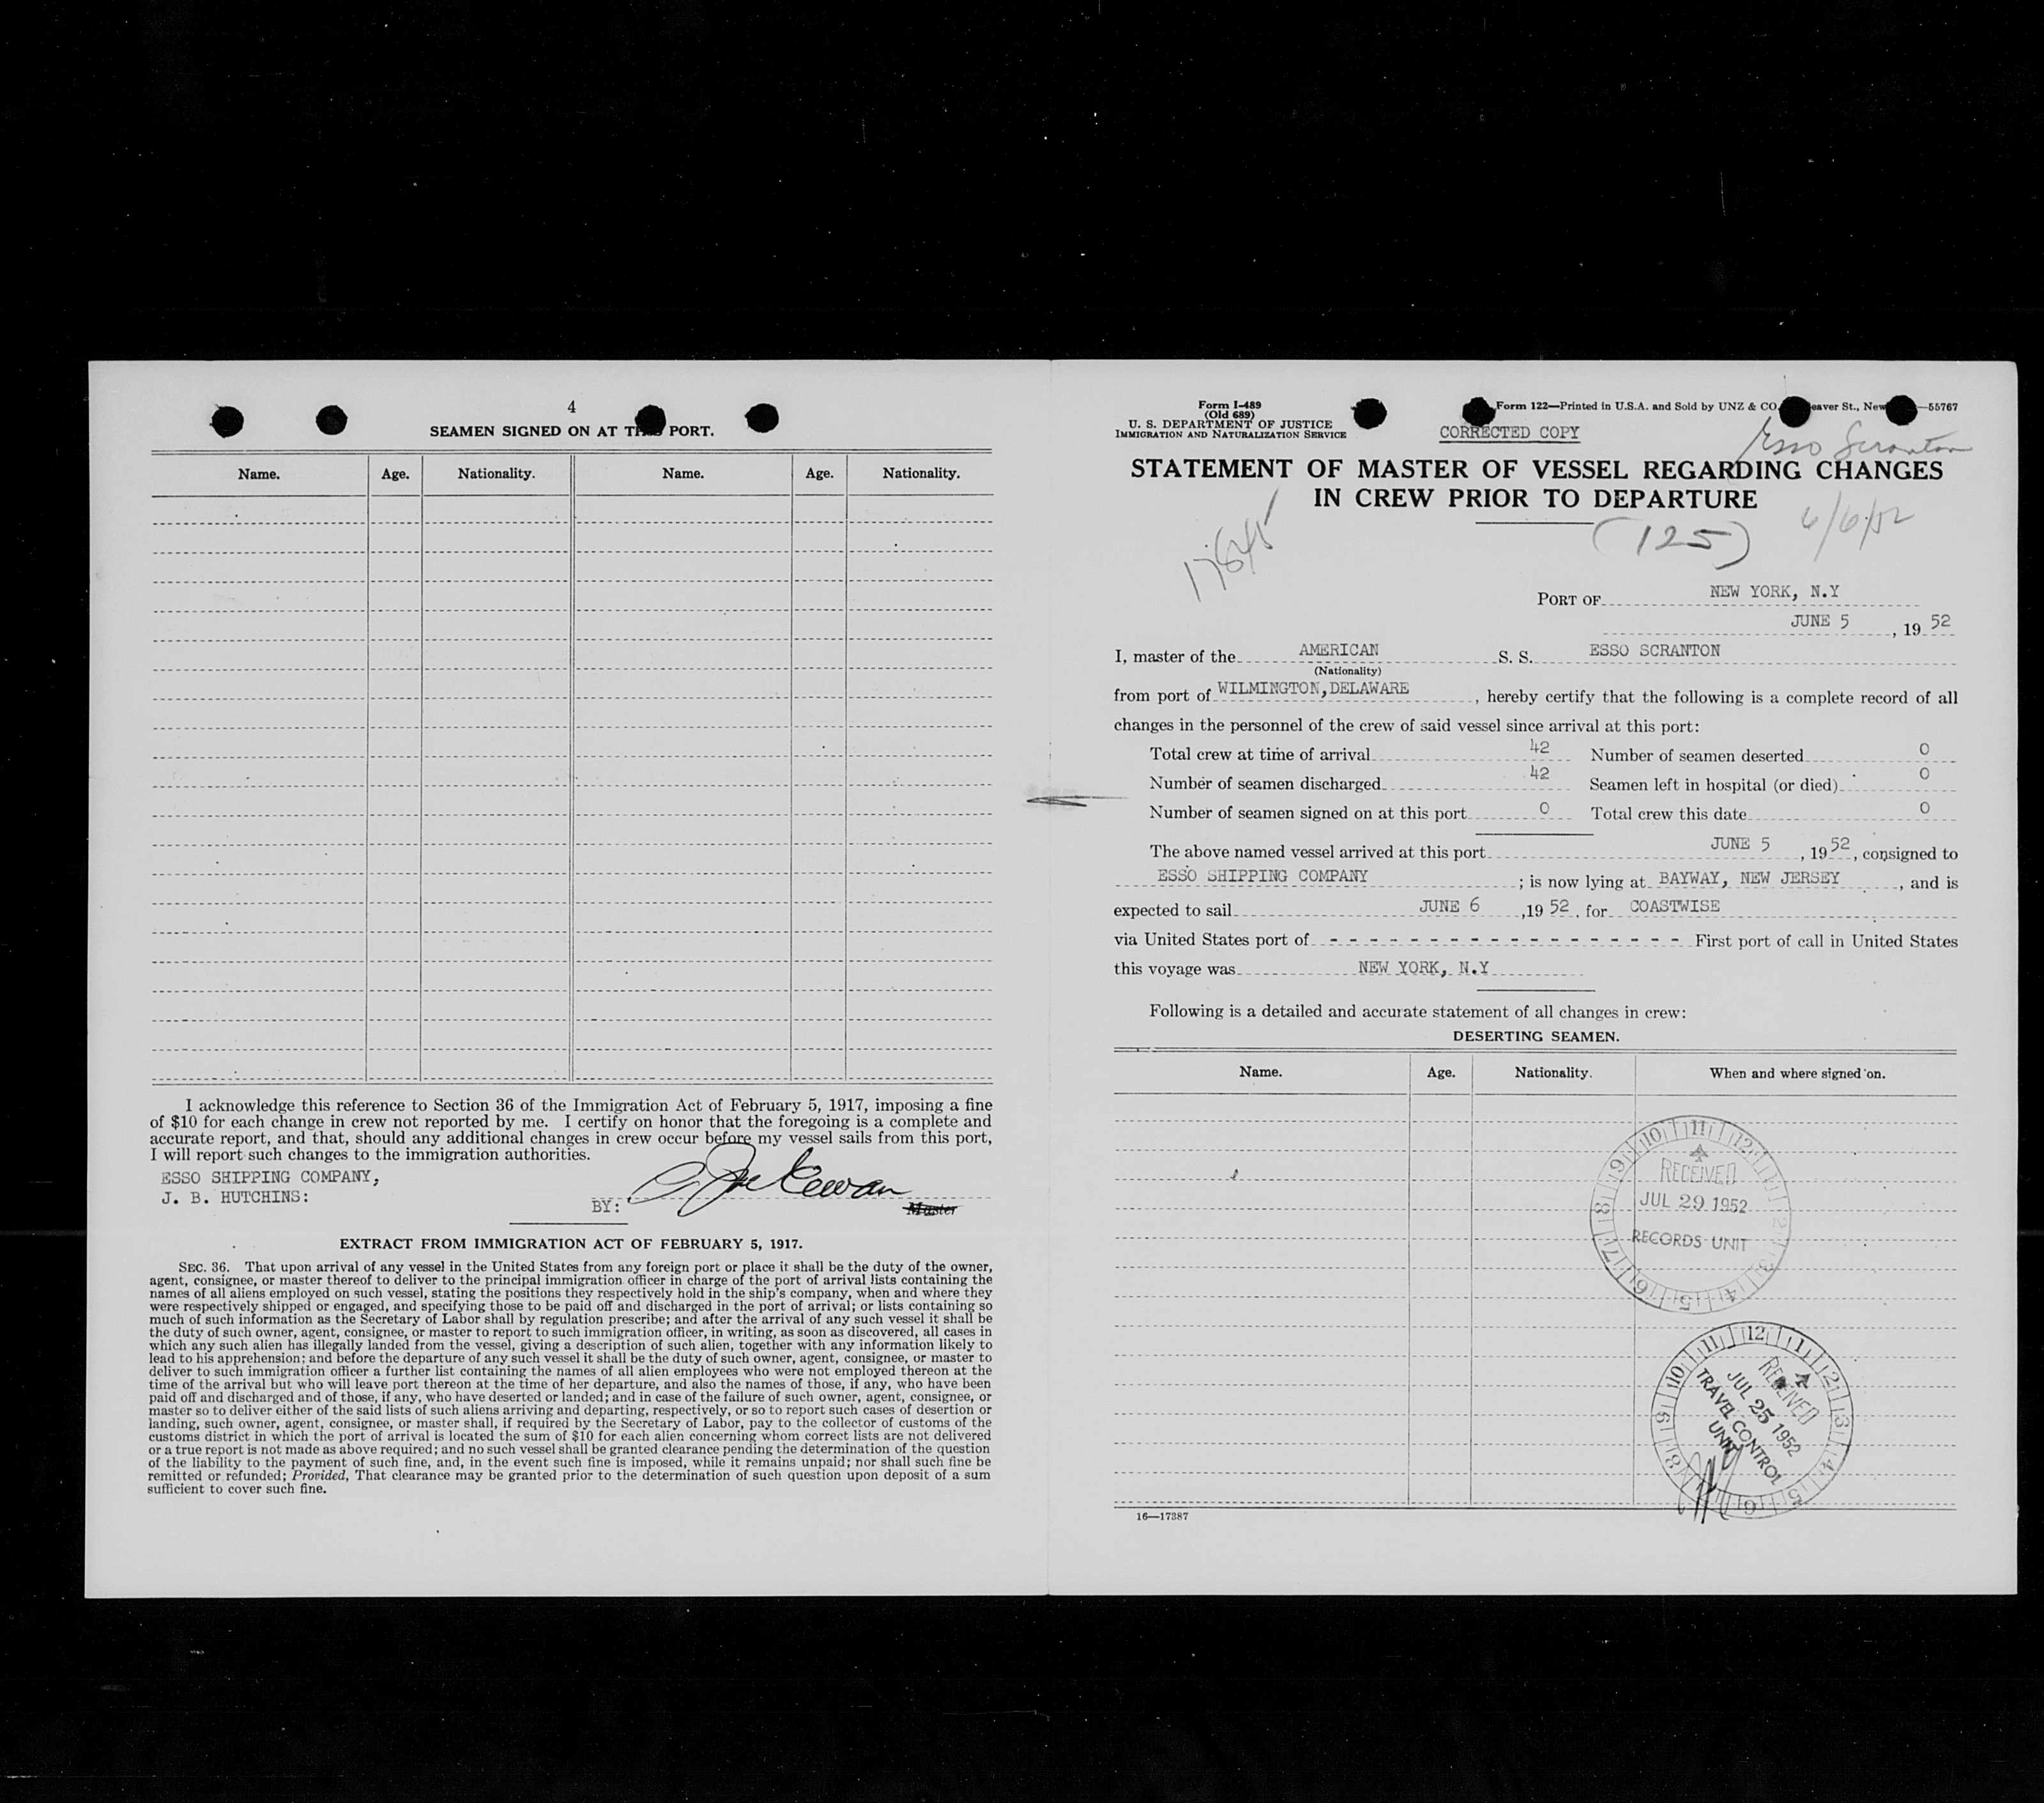 4
SEAMEN SIGNED ON AT THIS PORT.
Name. Age. Nationality. Name. Age. Nationality.
I acknowledge this reference to Section 36 of the Immigration Act of February 5, 1917, imposing a fine
of $10 for each change in crew not reported by me. I certify on honor that the foregoing is a complete and
accurate report, and that, should any additional changes in crew occur before my vessel sails from this port,
I will report such changes to the immigration authorities.
ESSO SHIPPING COMPANY,
J. B. HUTCHINS:
BY:
Master
EXTRACT FROM IMMIGRATION ACT OF FEBRUARY 5, 1917.
SEC. 36. That upon arrival of any vessel in the United States from any foreign port or place it shall be the duty of the owner,
agent, consignee, or master thereof to deliver to the principal immigration officer in charge of the port of arrival lists containing the
names of all aliens employed on such vessel, stating the positions they respectively hold in the ship's company, when and where they
were respectively shipped or engaged, and specifying those to be paid off and discharged in the port of arrival; or lists containing so
much of such information as the Secretary of Labor shall by regulation prescribe; and after the arrival of any such vessel it shall be
the duty of such owner, agent, consignee, or master to report to such immigration officer, in writing, as soon as discovered, all cases in
which any such alien has illegally landed from the vessel, giving a description of such alien, together with any information likely to
lead to his apprehension; and before the departure of any such vessel it shall be the duty of such owner, agent, consignee, or master to
deliver to such immigration officer a further list containing the names of all alien employees who were not employed thereon at the
time of the arrival but who will leave port thereon at the time of her departure, and also the names of those, if any, who have been
paid off and discharged and of those, if any, who have deserted or landed; and in case of the failure of such owner, agent, consignee, or
master so to deliver either of the said lists of such aliens arriving and departing, respectively, or so to report such cases of desertion or
landing, such owner, agent, consignee, or master shall, if required by the Secretary of Labor, pay to the collector of customs of the
customs district in which the port of arrival is located the sum of $10 for each alien concerning whom correct lists are not delivered
or a true report is not made as above required; and no such vessel shall be granted clearance pending the determination of the question
of the liability to the payment of such fine, and, in the event such fine is imposed, while it remains unpaid; nor shall such fine be
remitted or refunded; Provided, That clearance may be granted prior to the determination of such question upon deposit of a sum
sufficient to cover such fine.
Form I-489
(Old 689)
U. S. DEPARTMENT OF JUSTICE
IMMIGRATION AND NATURALIZATION SERVICE
Form 122—Printed in U.S.A. and Sold by UNZ & CO. eaver St., New —55767
CORRECTED COPY
Esso Scranton
STATEMENT OF MASTER OF VESSEL REGARDING CHANGES
IN CREW PRIOR TO DEPARTURE
(125) 6/6/52
17845
PORT OF NEW YORK, N.Y
JUNE 5, 19 52
I, master of the AMERICAN S. S. ESSO SCRANTON
(Nationality)
from port of WILMINGTON, DELAWARE, hereby certify that the following is a complete record of all
changes in the personnel of the crew of said vessel since arrival at this port:
Total crew at time of arrival 42 Number of seamen deserted 0
Number of seamen discharged 42 Seamen left in hospital (or died) 0
Number of seamen signed on at this port 0 Total crew this date 0
The above named vessel arrived at this port JUNE 5, 19 52, consigned to
ESSO SHIPPING COMPANY; is now lying at BAYWAY, NEW JERSEY, and is
expected to sail JUNE 6, 19 52, for COASTWISE
via United States port of - - - - - - - - - - - - - - - - - - First port of call in United States
this voyage was NEW YORK, N.Y
Following is a detailed and accurate statement of all changes in crew:
DESERTING SEAMEN.
Name. Age. Nationality. When and where signed on.
10 11 12 1 2 3 4 5 6 7 8 9
RECEIVED
JUL 29 1952
RECORDS UNIT
10 11 12 1 2 3 4 5 6 7 8 9
RECEIVED
JUL 25 1952
TRAVEL CONTROL
UNIT
16—17387